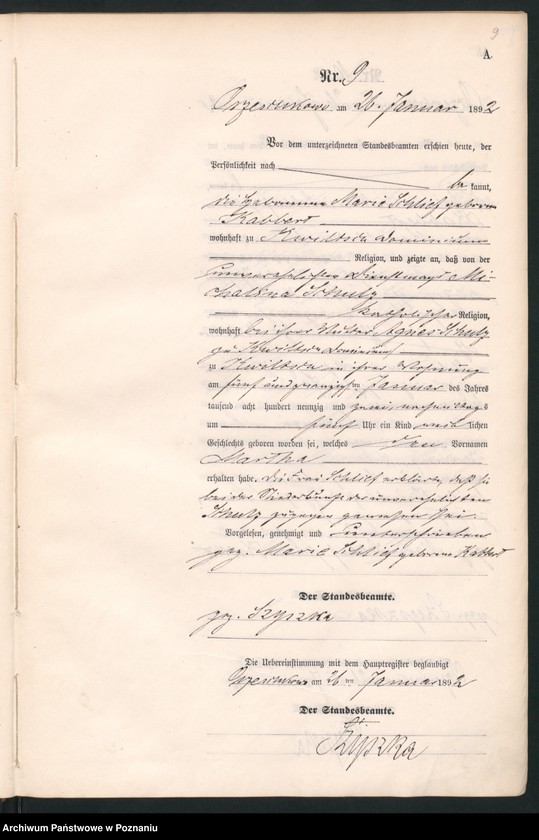 9
A.
Nr. 9
am 26. Januar 1892
Vor dem unterzeichneten Standesbeamten erschien heute, der
Persönlichkeit nach
be kannt,
die Hebamme Marie Schlief geborene
Kabbert
wohnhaft zu Kwiltsch Dominium
Religion, und zeigte an, daß von der
unverehelichten Dienstmagd Mi-
chalina Schulz
katholischer Religion,
wohnhaft bei ihrer Mutter Agnes Schulz
zu Kwiltsch Dominium
zu Kwiltsch in ihrer Wohnung
am fünf und zwanzigsten Januar des Jahres
tausend acht hundert neunzig und zwei, nachmittags
um fünf Uhr ein Kind weib lichen
Geschlechts geboren worden sei, welches den Vornamen
Martha
erhalten habe. Die Frau Schlief erklärte, daß sie
bei der Niederkunft der unverehelichten
Schulz zugegen gewesen sei.
Vorgelesen, genehmigt und unterschrieben
gez. Marie Schlief geborene Kabbert
Der Standesbeamte.
gez. Szyszka
Die Uebereinstimmung mit dem Hauptregister beglaubigt
am 26 ten Januar 1892
Der Standesbeamte.
Szyszka
Archiwum Państwowe w Poznaniu